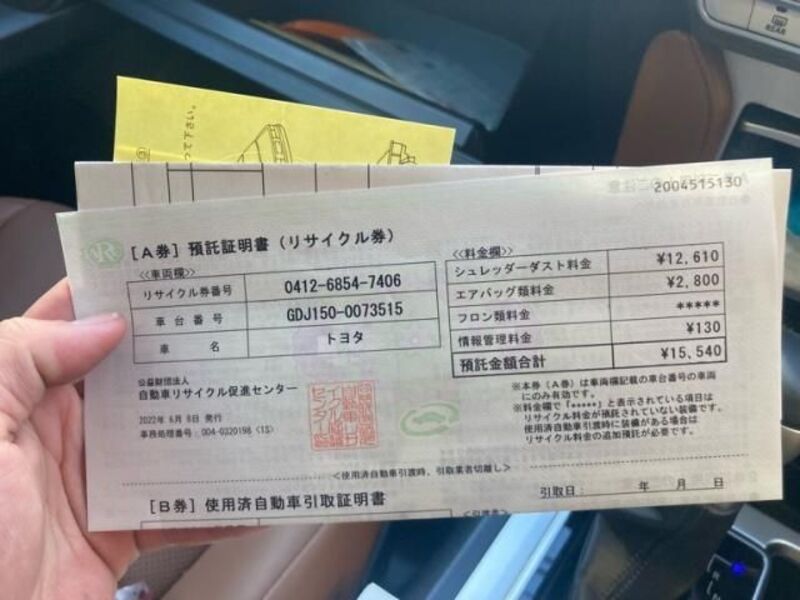 って下さい。
2004515130
[A券] 預託証明書（リサイクル券）
≪車両欄≫
リサイクル券番号 0412-6854-7406
車台番号 GDJ150-0073515
車名 トヨタ
≪料金欄≫
シュレッダーダスト料金 ¥12,610
エアバッグ類料金 ¥2,800
フロン類料金 *****
情報管理料金 ¥130
預託金額合計 ¥15,540
公益財団法人
自動車リサイクル促進センター
2022年 6月 8日 発行
事務処理番号：004-0320198 <1S>
※本券（A券）は車両欄記載の車台番号の車両
にのみ有効です。
※料金欄で「*****」と表示されている項目は
リサイクル料金が預託されていない装備です。
使用済自動車引渡時に装備がある場合は
リサイクル料金の追加預託が必要です。
＜使用済自動車引渡時、引取業者切離し＞
[B券] 使用済自動車引取証明書
引取日： 年 月 日
REAR